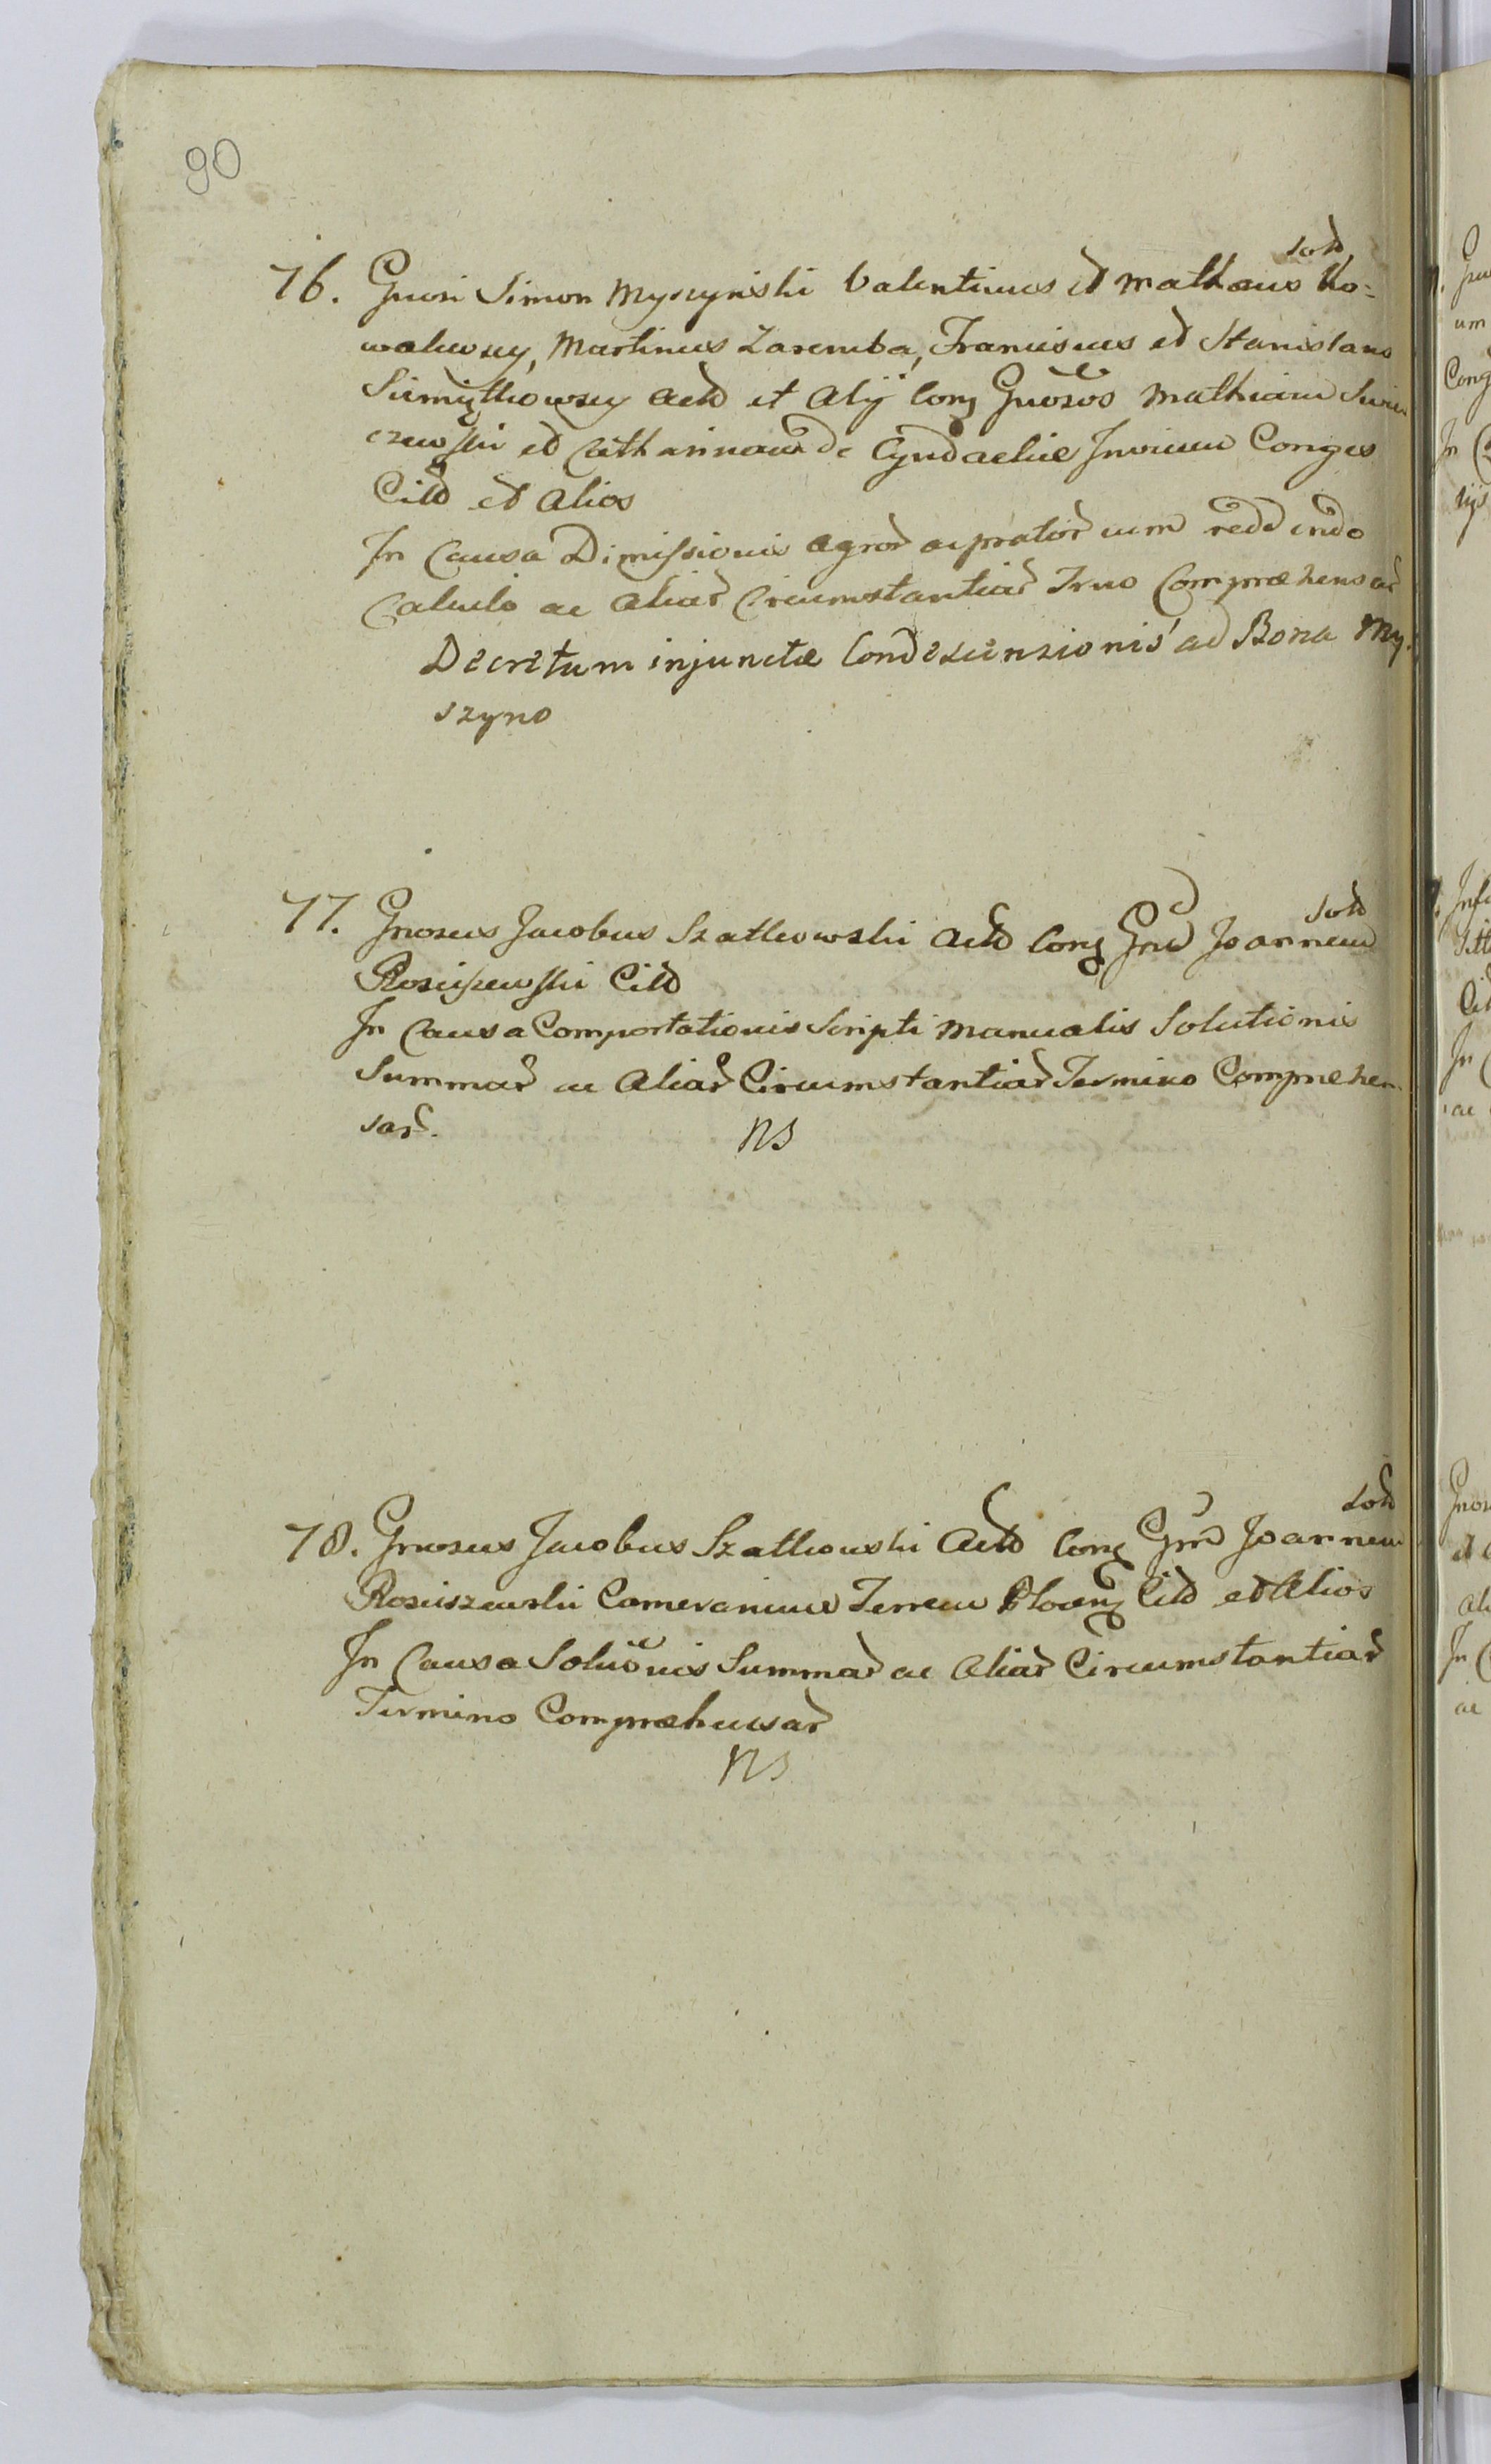 90
sold
76. Gnosi Simon Myszyński Valentinus et Mathaeus Ko=
walewscy, Martinus Zaremba, Franciscus et Stanislaus
Siemiątkowscy Acto et Alij Cong Gnosos Mathiam
czewski et Catharinam de Conges
Citt et Alios
In Causa Dimissionis Agror ac prator cum reddendo
Calculo ac Aliar Circumstantiar Trno Compræhensar
Decretum injunctæ Condescensionis ad Bona My-
szyno
sold
77. Gnosus Jacobus Szatkowski Acto Cong Gnm Joannem
Rosciszewski Citt
In Causa Comportationis Scripti Manualis Solutionis
Summar ac Aliar Circumstantiar Termino Compræhen
sar.
NS
sold
78. Gnosus Jacobus Szatkowski Acto Cong Gnm Joannem
Rosciszewski Camerarium Terrem Plocen Citt et Alios
In Causa Soluonis Summar ac Aliar Circumstantiar
Termino Compræhensar
NS